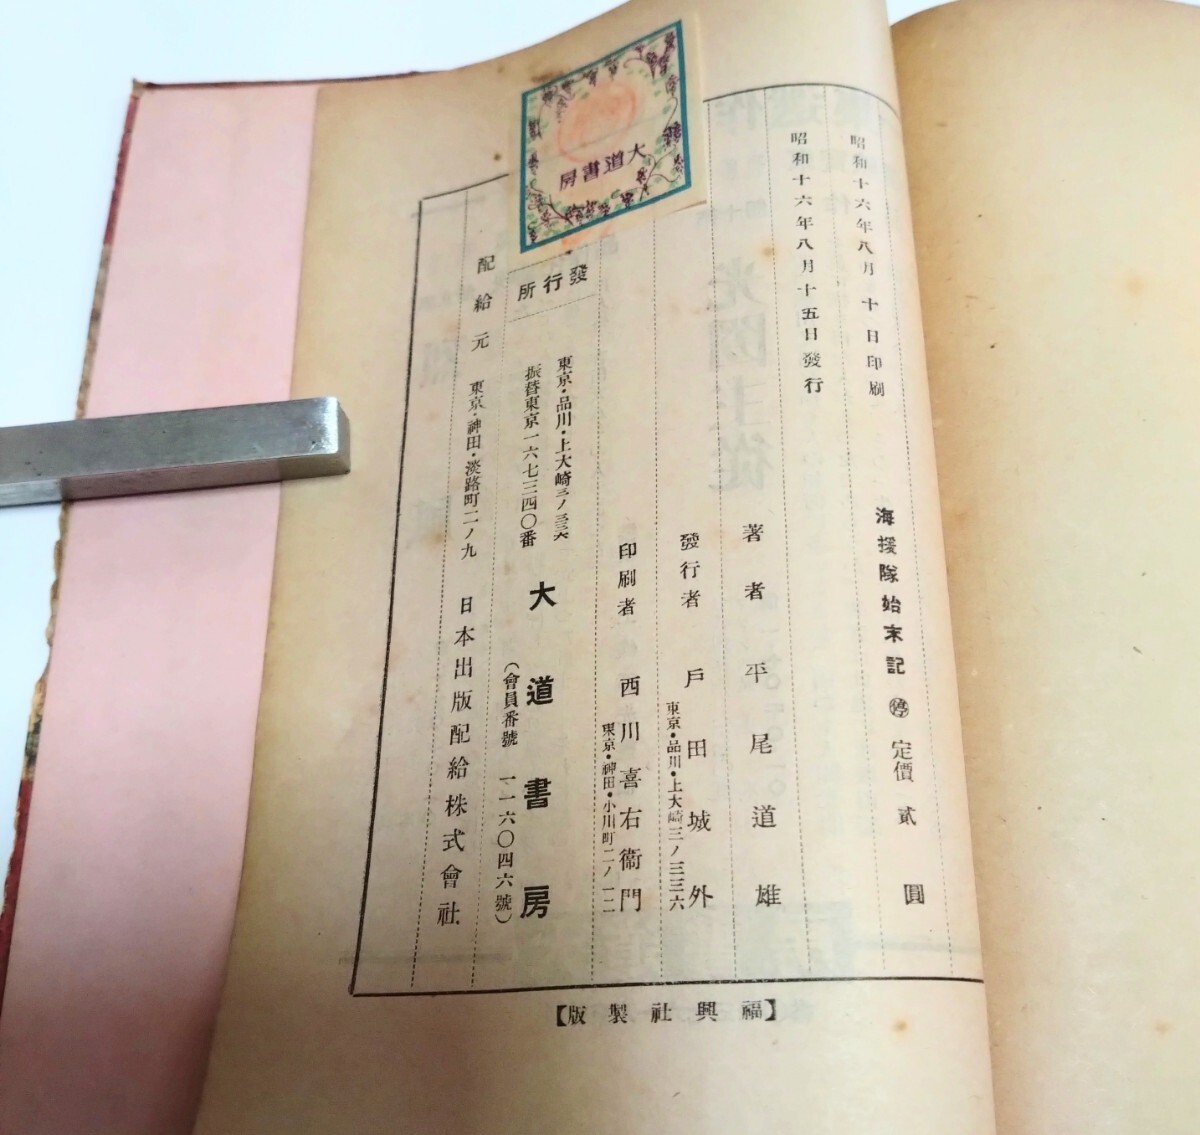 昭和十六年八月 十 日印刷
昭和十六年八月十五日發行
海援隊始末記 ㊡ 定價 貳 圓
著者 平尾道雄
發行者 戸田城外
東京・品川・上大崎三ノ三三六
印刷者 西川喜右衞門
東京・神田・小川町二ノ一二
大道書房
發行所
東京・品川・上大崎三ノ三三六
振替東京一六七三四〇番
大道書房
(會員番號 一一六〇四六號)
配給元 東京・神田・淡路町二ノ九 日本出版配給株式會社
【版製社興福】